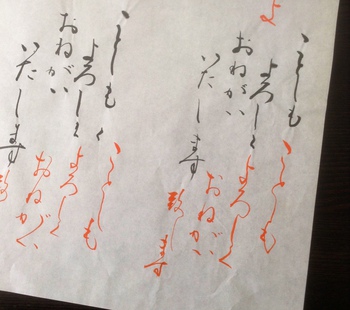 ことしも
よろしく
おねがい
いたします
ことしも
よろしく
おねがい
致します
ことしも
よろしく
おねがい
いたします
ことしも
よろしく
おねがい